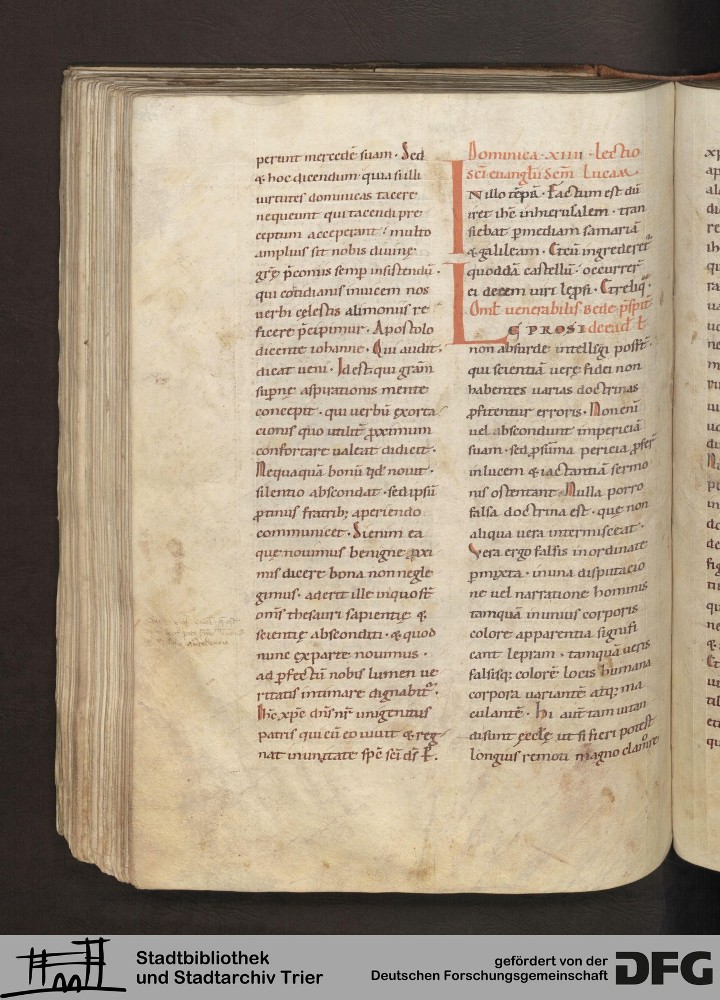 perunt mercedē suam · Sed
& hoc dicendum quia si illi
uirtutes dominicas tacere
nequeunt qui tacendi pre
ceptum acceperant · multo
amplius sit nobis diuinę
grę p̄conus semp insistendū ·
qui cotidianis inuicem nos
uerbi cęlestis alimoniis re
ficere p̄cipimur · Apostolo
dicente iohanne · Qui audit ·
dicat ueni · Idest qui gram̄
supnę aspirationis mente
concepit · qui uerbū exorta
cionis quo utilit̄ ꝓximum
confortare ualeat didicit ·
Nequaquā bonū qd' nouit ·
silentio abscondat · sed ipsū
ꝓtinus fratrib; aperiendo
communicet · Si enim ea
que nouimus benigne ꝓxi
mis dicere bona non negle
gimus · aderit ille in quo st̄
om̄s thesauri sapientię &
scientię absconditi · & quod
nunc ex parte nouimus ·
ad ꝑfectū nobis lumen ue
ritatis intimare dignabit̄ ·
Ihc xp̄c dn̄s nr̄ unigenitus
patris qui cū eo uiuit & reg
nat in unitate sp̄c sc̄i ds̄ P̄.
Dominica · xiiii · lectio
sc̄i euanglii sc̄dm Lucam ·
IN illo tēpr̄ · Factum est dū
iret ihc̄ in hierusalem · tran
siebat ꝑ mediam samariā
& galileam · Et cū ingrederet̄
quoddā castellū · occurrer̄
ei decem uiri lepsi · Et reliq̄ ·
Oml̄ uenerabilis Bede p̄spit̄
LEPROSI de ead' ł
non absurde intellegi poss̄t ·
qui scientiā uerę fidei non
habentes uarias doctrinas
ꝓfitentur erroris · Non enī
uel abscondunt impericiā
suam · sed ꝓ sūma pericia ꝓfer̄
in lucem & iactantiā sermo
nis ostentant · Nulla porro
falsa doctrina est · quę non
aliqua uera intermisceat ·
Vera ergo falsis inordinate
pmixta · in una disputacio
ne uel narratione hominis
tamquā in unius corporis
colore apparentia signifi
cant lepram · tamquā ueris
falsisq; colorē locis humana
corpora uariantē atq; ma
culantē · Hi aut̄ tam uitan
di sunt ęcclę ut si fieri potest
longius remoti magno clamore
Stadtbibliothek
und Stadtarchiv Trier
gefördert von der
Deutschen Forschungsgemeinschaft
DFG